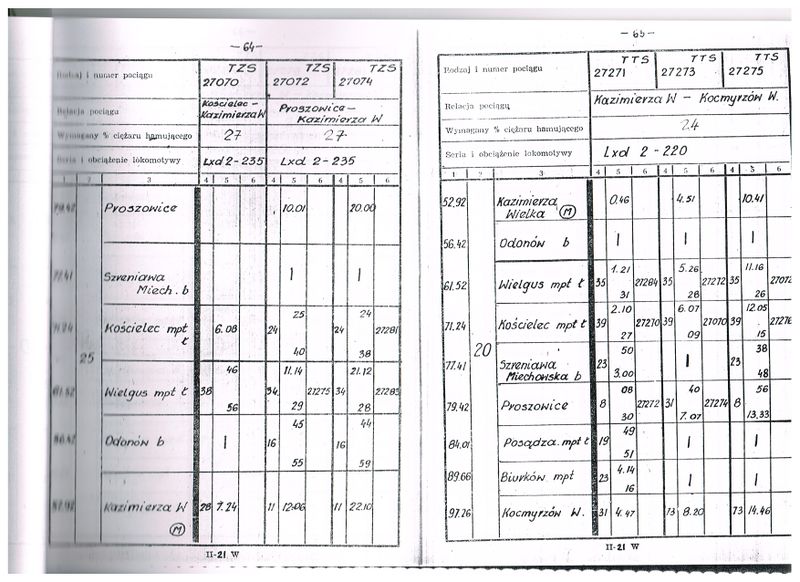 — 64 —
Rodzaj i numer pociągu
TZS 27070
TZS 27072
TZS 27074
Relacja pociągu
Kościelec – Kazimierza W
Proszowice – Kazimierza W
Wymagany % ciężaru hamującego
27
27
Seria i obciążenie lokomotywy
Lxd2-235
Lxd 2-235
1 2 3 4 5 6 4 5 6 4 5 6
79.42 Proszowice 10.01 20.00
77.41 Szreniawa Miech. b | |
25 24
71.24 Kościelec mpt ł 6.08 24 24 27281
25
40 38
46 11.14 21.12
61.52 Wielgus mpt ł 38 34 27275 34 27283
56 29 28
45 44
56.42 Odonów b | 16 16
55 59
52.92 Kazimierza W (M) 28 7.24 11 12.06 11 22.10
II-21 W
— 65 —
Rodzaj i numer pociągu
TTS 27271
TTS 27273
TTS 27275
Relacja pociągu
Kazimierza W – Kocmyrzów W.
Wymagany % ciężaru hamującego
24
Seria i obciążenie lokomotywy
Lxd 2-220
1 2 3 4 5 6 4 5 6 4 5 6
52.92 Kazimierza Wielka (M) 0.46 4.51 10.41
56.42 Odonów b | | |
1.21 5.26 11.16
61.52 Wielgus mpt ł 35 27284 35 27272 35 27072
31 28 26
2.10 6.07 12.05
71.24 Kościelec mpt ł 39 27270 39 27070 39 27276
27 09 15
20
50 38
77.41 Szreniawa Miechowska b 23 | 23
3.00 48
08 40 56
79.42 Proszowice 8 27272 31 27274 8
30 7.07 13.33
49
84.01 Posądza mpt ł 19 | |
51
4.14
89.66 Biurków mpt 23 | |
16
97.76 Kocmyrzów W. 31 4.47 73 8.20 73 14.46
II-21 W